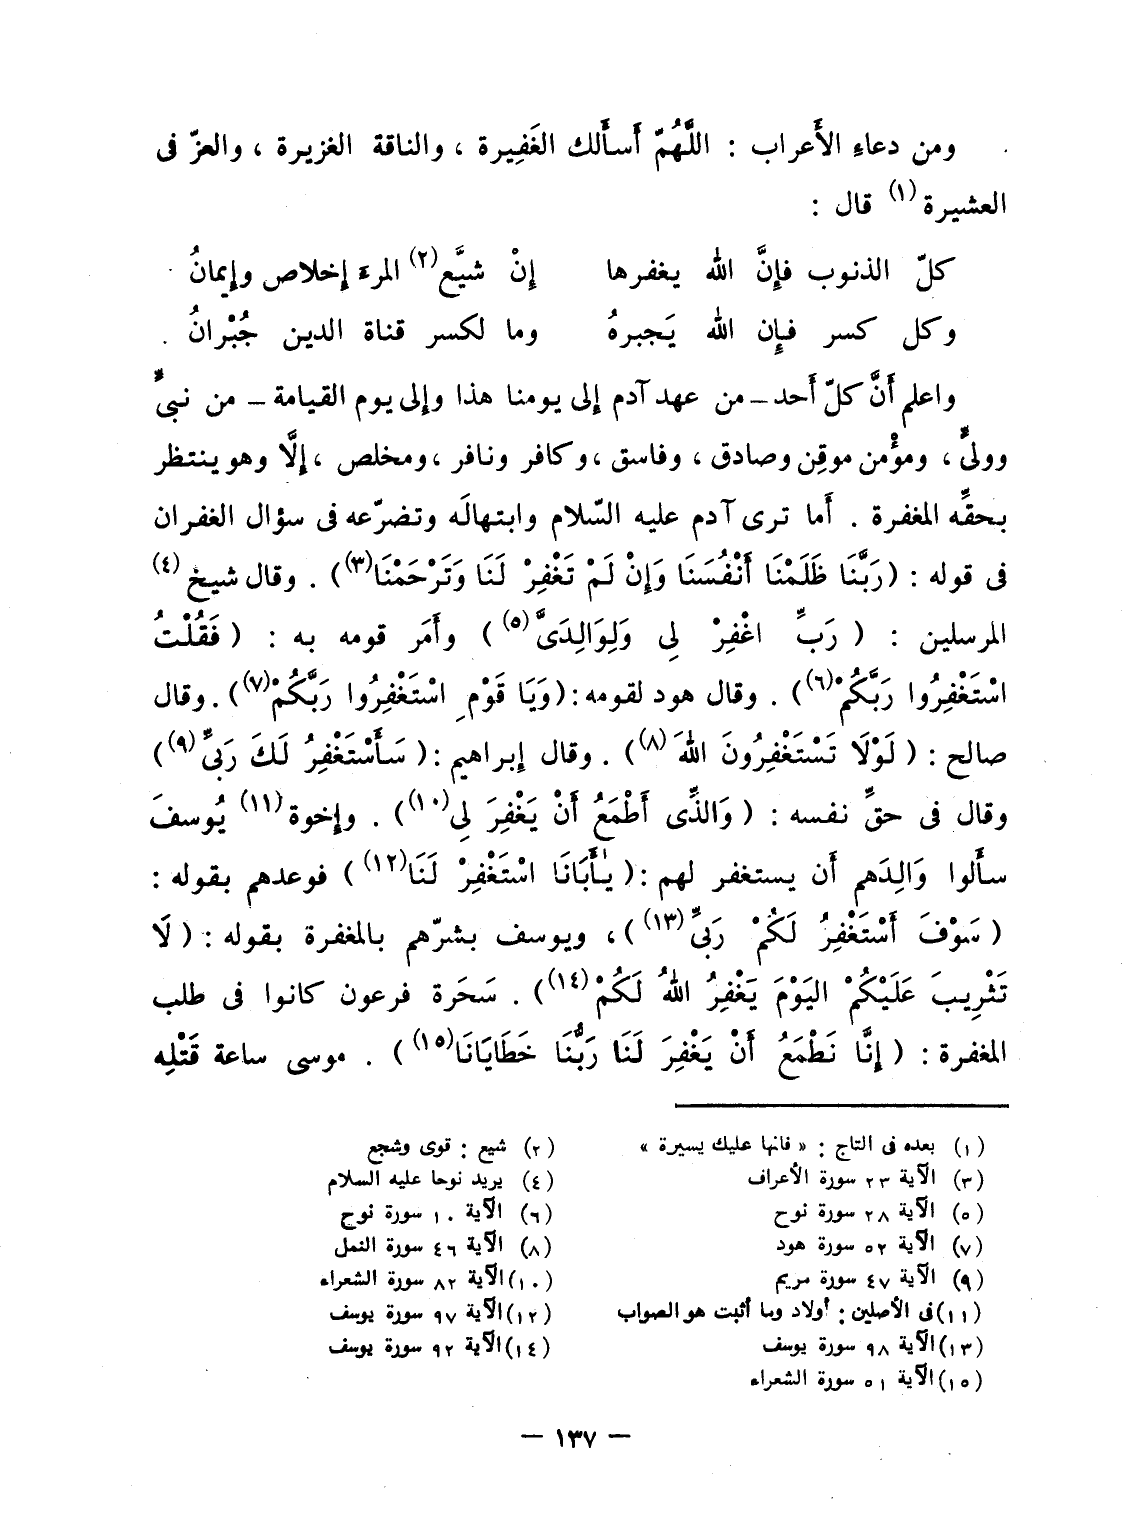 ومن دعاءِ الأَعراب : اللَّهُمّ أَسأَلك الغَفِيرة ، والناقة الغزيرة ، والعزّ فى
العشيرة (١) قال :
كلّ الذنوب فإِنَّ الله يغفرها إِنْ شيَّع(٢) المرءَ إِخلاص وإِيمانُ
وكل كسر فإِن الله يَجبرهُ وما لكسر قناة الدين جُبْرانُ .
واعلم أَنَّ كلّ أَحد ــ من عهد آدم إِلى يومنا هذا وإِلى يوم القيامة ــ من نبىٍّ
وولىٍّ ، ومؤْمن موقِن وصادق ، وفاسق ، وكافر ونافر ، ومخلص ، إِلَّا وهو ينتظر
بحقِّه المغفرة . أَما ترى آدم عليه السّلام وابتهالَه وتضرّعه فى سؤال الغفران
فى قوله : (رَبَّنَا ظَلَمْنَا أَنْفُسَنَا وَإِنْ لَمْ تَغْفِرْ لَنَا وَتَرْحَمْنَا(٣)) . وقال شيخ (٤)
المرسلين : ( رَبِّ اغْفِرْ لِى وَلِوَالِدَىَّ(٥) ) وأَمَر قومه به : ( فَقُلْتُ
اسْتَغْفِرُوا رَبَّكُمْ(٦)) . وقال هود لقومه : (وَيَا قَوْمِ اسْتَغْفِرُوا رَبَّكُمْ(٧)) . وقال
صالح : ( لَوْلَا تَسْتَغْفِرُونَ اللهَ (٨)) . وقال إِبراهيم : ( سَأَسْتَغْفِرُ لَكَ رَبىِّ(٩))
وقال فى حقِّ نفسه : ( وَالَّذِى أَطْمَعُ أَنْ يَغْفِرَ لِى(١٠)) . وإِخوة(١١) يُوسفَ
سأَلوا وَالِدَهم أَن يستغفر لهم : ( يٰأَبَانَا اسْتَغْفِرْ لَنَا(١٢)) فوعدهم بقوله :
( سَوْفَ أَسْتَغْفِرُ لَكُمْ رَبىِّ(١٣)) ، ويوسف بشرّهم بالمغفرة بقوله : ( لَا
تَثْرِيبَ عَلَيْكُمْ اليَوْمَ يَغْفِرُ اللهُ لَكُمْ(١٤)) . سَحَرة فرعون كانوا فى طلب
المغفرة : ( إِنَّا نَطْمَعُ أَنْ يَغْفِرَ لَنَا رَبُّنَا خَطَايَانَا(١٥)) . موسى ساعة قَتْلِه
(١) بعده فى التاج : « فانها عليك يسيرة » (٢) شيع : قوى وشجع
(٣) الآية ٢٣ سورة الأعراف (٤) يريد نوحا عليه السلام
(٥) الآية ٢٨ سورة نوح (٦) الآية ١٠ سورة نوح
(٧) الآية ٥٢ سورة هود (٨) الآية ٤٦ سورة النمل
(٩) الآية ٤٧ سورة مريم (١٠) الآية ٨٢ سورة الشعراء
(١١) فى الأصلين : أولاد وما أثبت هو الصواب (١٢) الآية ٩٧ سورة يوسف
(١٣) الآية ٩٨ سورة يوسف (١٤) الآية ٩٢ سورة يوسف
(١٥) الآية ٥١ سورة الشعراء
— ١٣٧ —